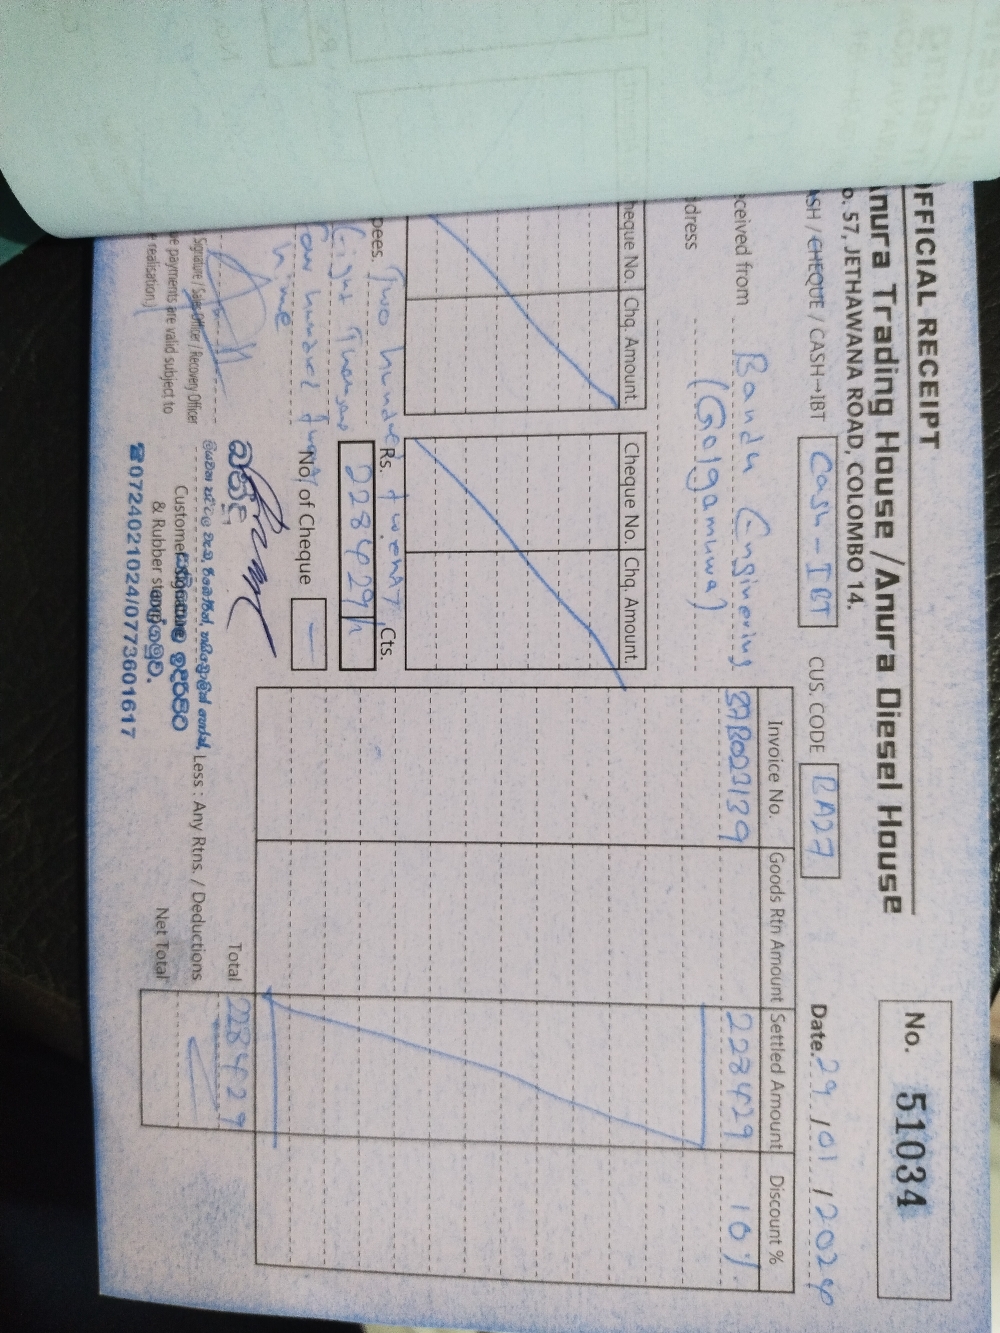 OFFICIAL RECEIPT
No. 51034
Anura Trading House / Anura Diesel House
o. 57, JETHAWANA ROAD, COLOMBO 14.
SH / CHEQUE / CASH→IBT Cash - IBT CUS. CODE BA27 Date. 29/01/2024
ceived from Bandu Enginering
dress (Galgamuwa)
heque No. Chq. Amount Cheque No. Chq. Amount.
Invoice No. Goods Rtn Amount Settled Amount Discount %
BAB023139 228429 10%
pees. Two hundred twenty
Eight Thousand
Four hundred twenty
Nine
Rs. Cts.
228429/-
No. of Cheque —
Signature / Sales Officer / Recovery Officer
e payments are valid subject to
e realisation)
Customer Signature
& Rubber stamp
☎0724021024/0773601617
Total 228429
Less : Any Rtns. / Deductions
Net Total